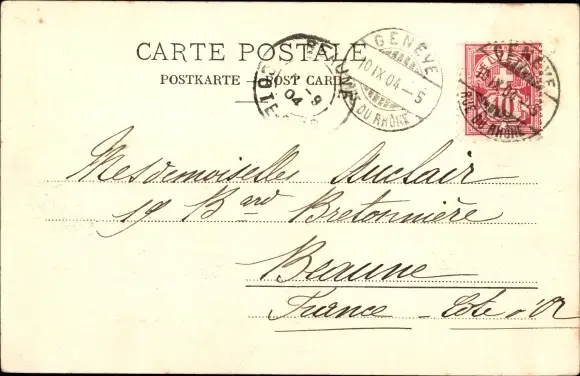 CARTE POSTALE
POSTKARTE — POST CARD
BEAUNE
CÔTE-D'OR
-9
04
GENÈVE
10 IX 04 — 5
R. DU RHÔNE
GENÈVE
RUE DU RHÔNE
10
Mesdemoiselles Auclair
19 Bard Bretonnière
Beaune
France - Côte d'Or